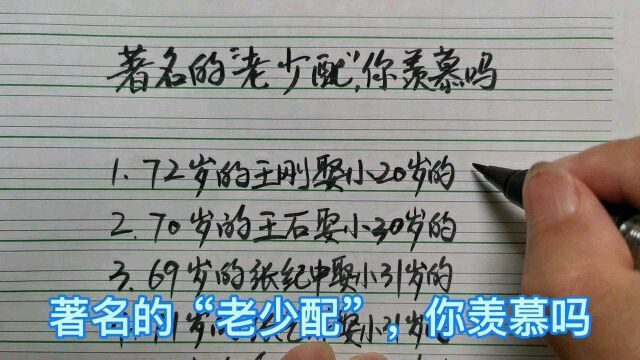 著名的"老少配",你羡慕吗
1.72岁的王刚娶小20岁的
2.70岁的王石娶小30岁的
3.69岁的张纪中娶小31岁的
著名的“老少配”,你羡慕吗